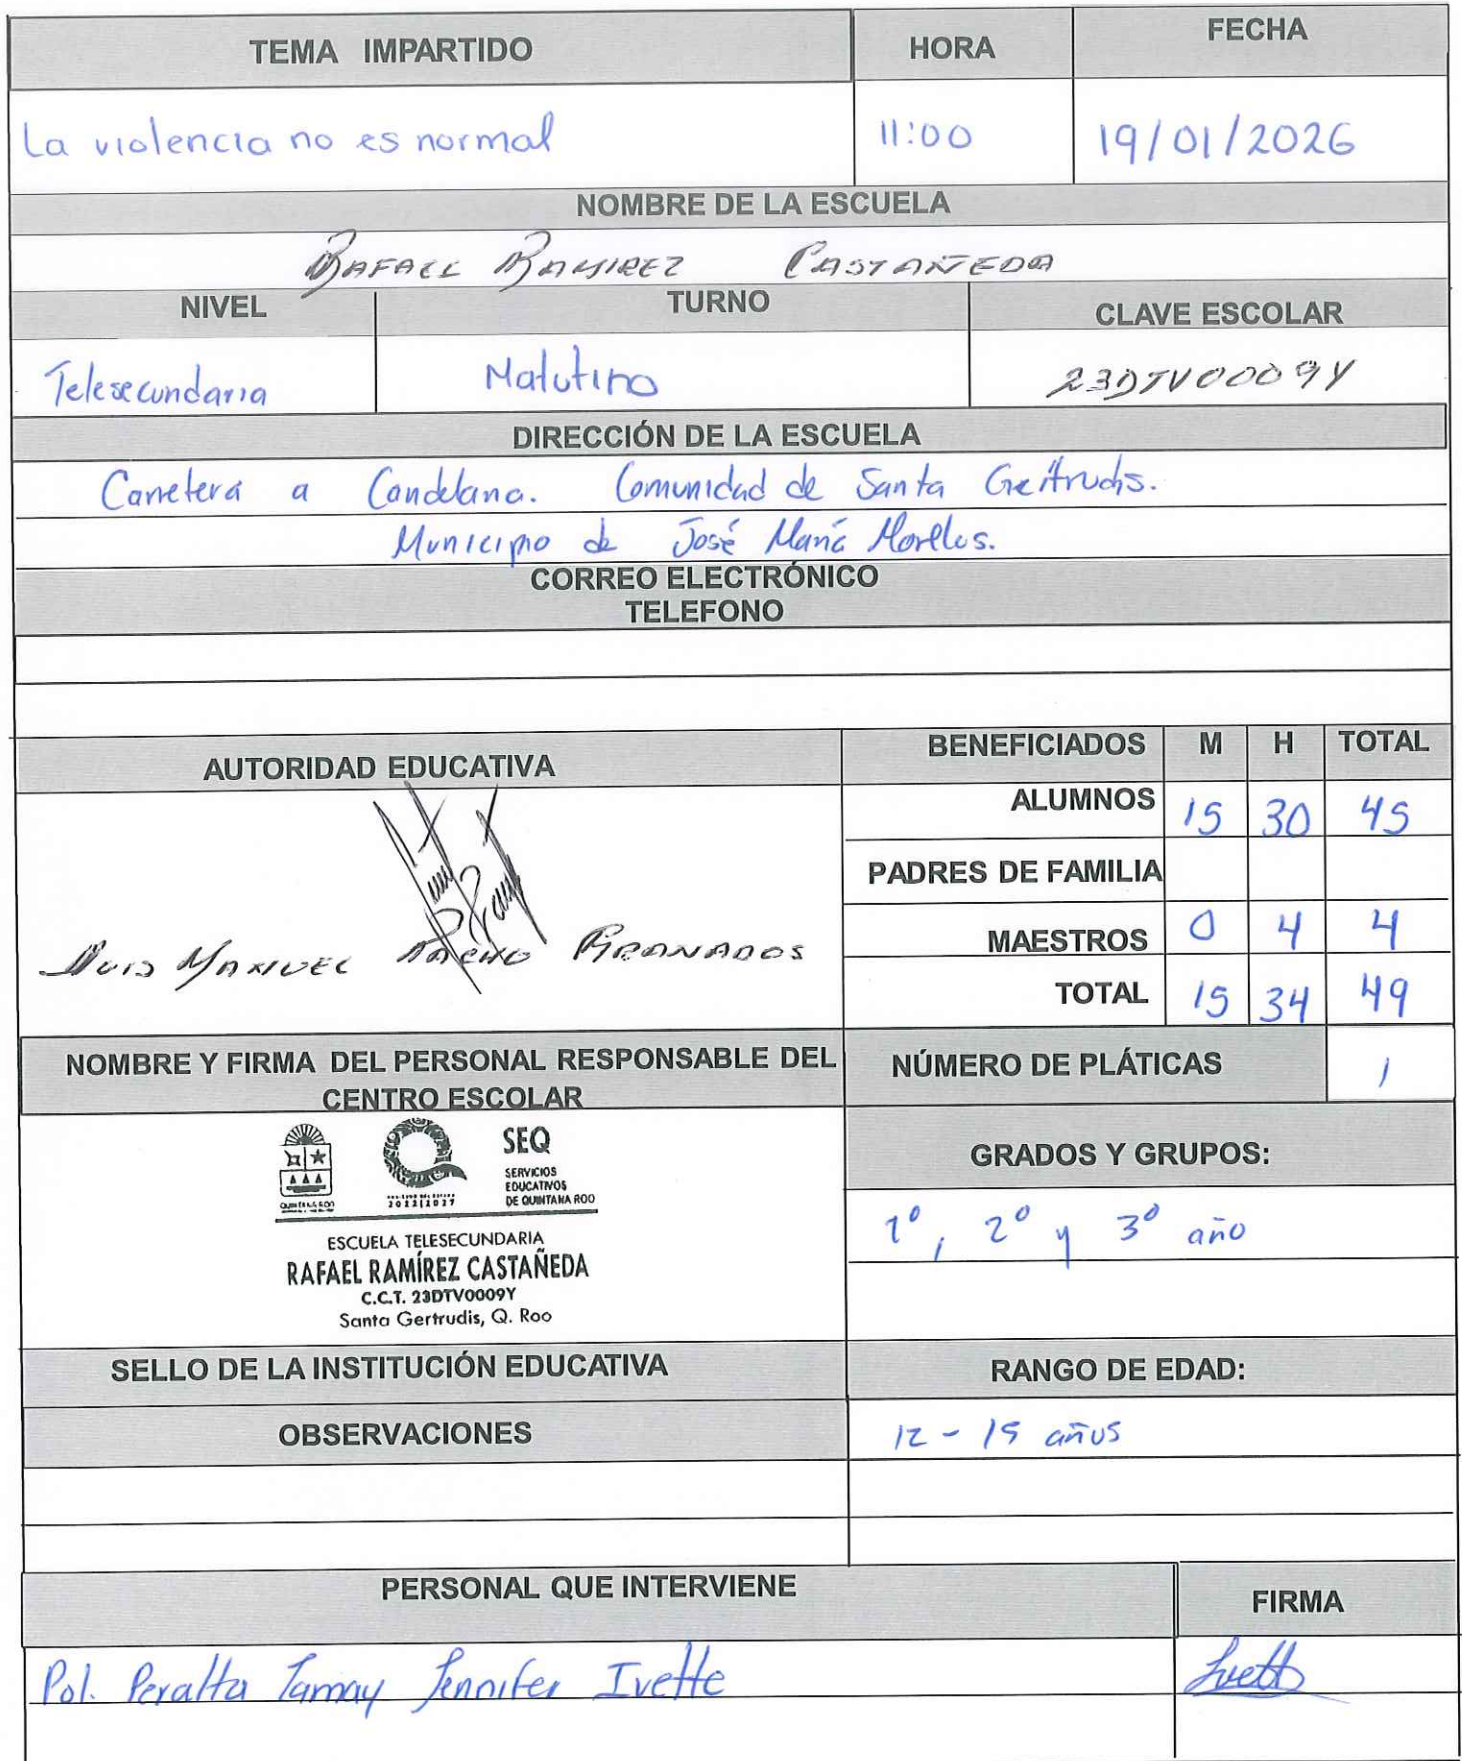 TEMA IMPARTIDO HORA FECHA
La violencia no es normal 11:00 19/01/2026
NOMBRE DE LA ESCUELA
RAFAEL RAMIREZ CASTAÑEDA
NIVEL TURNO CLAVE ESCOLAR
Telesecundaria Matutino 23DTV0009Y
DIRECCIÓN DE LA ESCUELA
Carretera a Candelaria. Comunidad de Santa Gertrudis.
Municipio de José María Morelos.
CORREO ELECTRÓNICO
TELEFONO
AUTORIDAD EDUCATIVA BENEFICIADOS M H TOTAL
ALUMNOS 15 30 45
PADRES DE FAMILIA
LUIS MANUEL GRANADOS MAESTROS 0 4 4
TOTAL 15 34 49
NOMBRE Y FIRMA DEL PERSONAL RESPONSABLE DEL CENTRO ESCOLAR NÚMERO DE PLÁTICAS 1
SEQ
SERVICIOS
EDUCATIVOS
DE QUINTANA ROO
QUINTANA ROO
2022|2027
GRADOS Y GRUPOS:
1°, 2° y 3° año
ESCUELA TELESECUNDARIA
RAFAEL RAMÍREZ CASTAÑEDA
C.C.T. 23DTV0009Y
Santa Gertrudis, Q. Roo
SELLO DE LA INSTITUCIÓN EDUCATIVA RANGO DE EDAD:
OBSERVACIONES 12 - 15 años
PERSONAL QUE INTERVIENE FIRMA
Pol. Peralta Tamay Jennifer Ivette Ivett